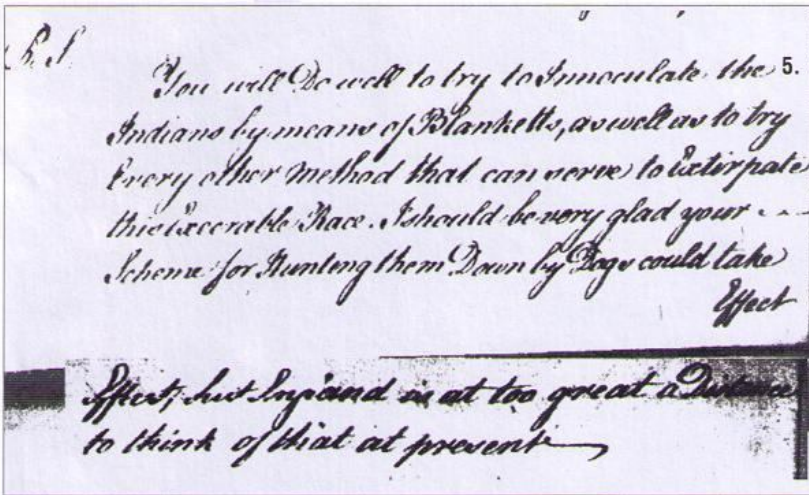 P.S.
You will Do well to try to Innoculate the 5.
Indians by means of Blanketts, as well as to try
Every other method that can serve to Extirpate
this Execrable Race. I should be very glad your
Scheme for Hunting them Down by Dogs could take
Effect
Effect, but England is at too great a Distance
to think of that at present